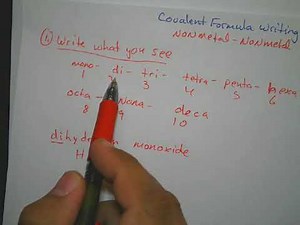 Covalent Formula Writing
NonMetal - NonMetal
① Write what you see
mono- di- tri- tetra- penta- hexa
1 3 4 5 6
octa- Nona- deca
8 9 10
dihydrogen monoxide
H